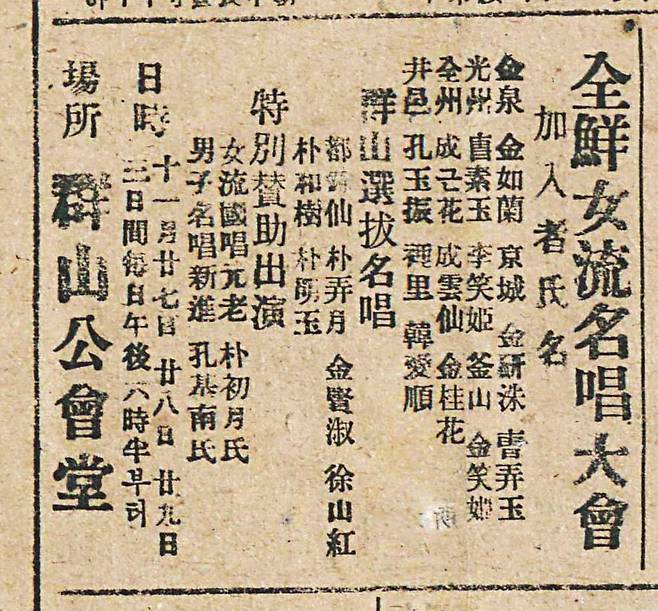 全鮮女流名唱大會
加入者氏名
金泉 金如蘭 京城 金硏洙 曺弄玉
光州 曺素玉 李笑姬 釜山 金笑姬
全州 成굔花 成雲仙 金桂花
井邑 孔玉振 裡里 韓愛順
群山選拔名唱
仙 朴弄月 金賢淑 徐山紅
朴和樹 朴明玉
特別賛助出演
女流國唱元老 朴初月氏
男子名唱新進 孔基南氏
日時 十一月廿七日 廿八日 廿九日
三日間每日午後六時半부터
場所 群山公會堂